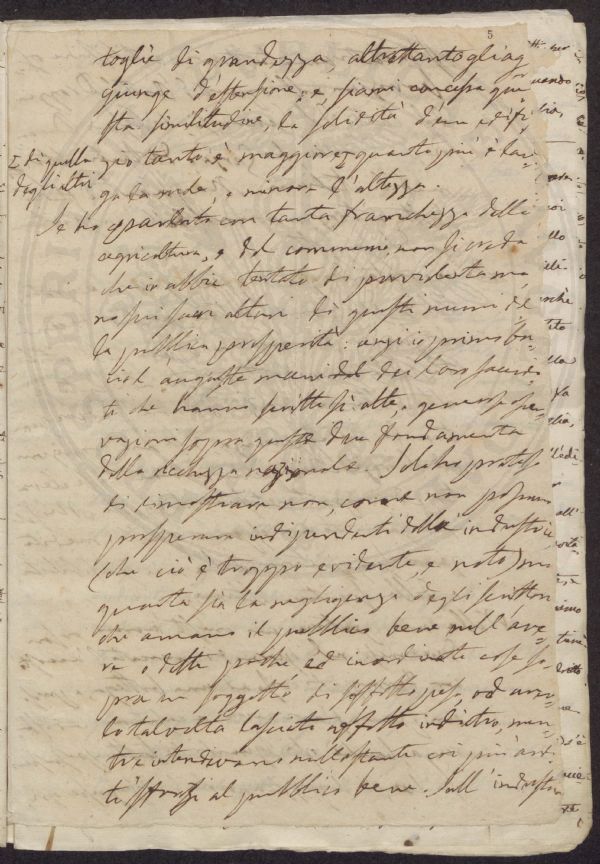 5
toglie di grandezza, altrettanto gli ag-
giunge d'estensione; e siami concessa que-
sta similitudine, la solidità d'un edifi-
zio tanto è maggiore quanto più è lar-
I di quella
degli altri
ga la mole, e minore l'altezza.
Se ho parlato con tanta franchezza della
agricoltura, e del commercio, non si creda
che io abbia tentato di
sui sacri altari di questi numi del-
la pubblica prosperità: anzi io primo ba-
cio l'auguste mani dei loro sacerdo-
ti che hanno scritte sì alte, generose
sopra queste due fondamenta
della ricchezza nazionale. Solo ho preteso
di dimostrare non, come non possano
prosperare indipendenti dalla industria
(che ciò è troppo evidente, e noto) ma
quanta sia la negligenza degli scrittori
che amano il pubblico bene nell'ave-
re o dette poche, ed inordinate cose so-
pra un soggetto di siffatto peso, od aver-
lo talvolta lasciato affatto indietro, men-
tre intendevano nullostante coi più ardi-
ti sforzi al pubblico bene. Sull'industria